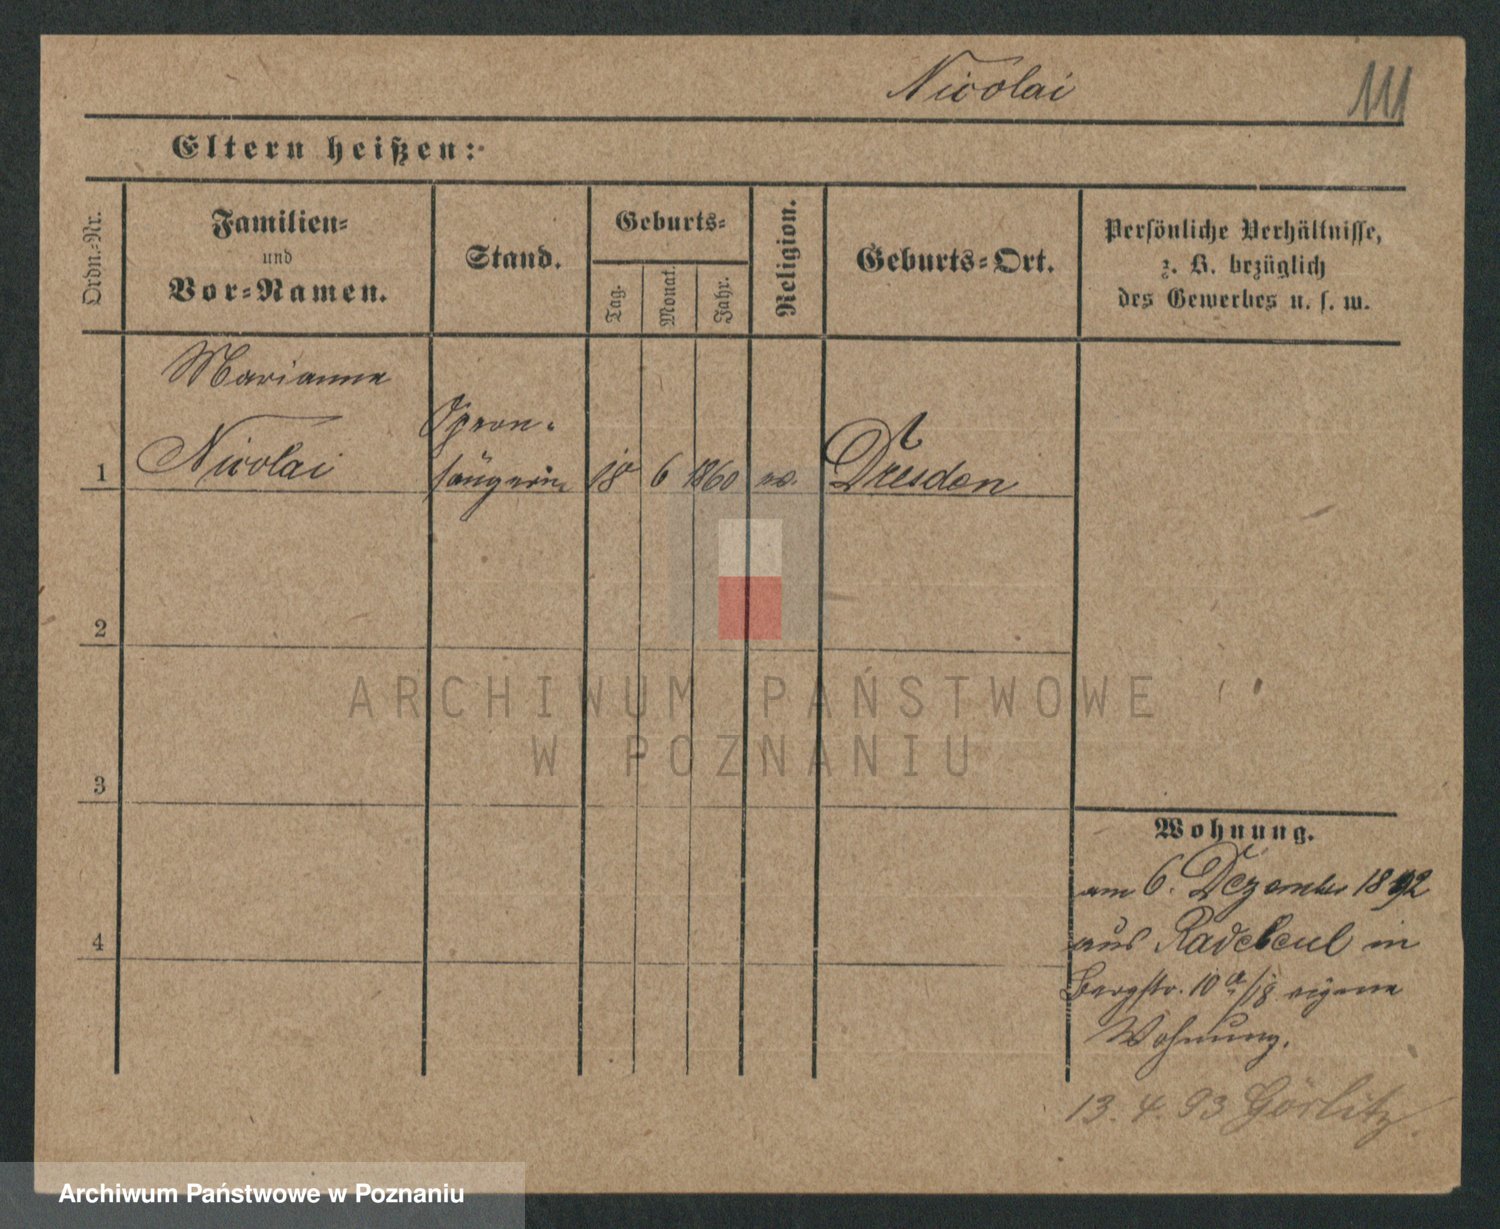 Nicolai
111
Eltern heißen:
Ordn.-Nr.
Familien-
und
Vor-Namen.
Stand.
Geburts-
Tag.
Monat.
Jahr.
Religion.
Geburts-Ort.
Persönliche Verhältnisse,
z. B. bezüglich
des Gewerbes u. s. w.
Marianne
Nicolai
Opern-
sängerin
1
18 6 1860
Dresden
2
3
4
ARCHIWUM PAŃSTWOWE
W POZNANIU
Wohnung.
am 6. Dezember 1892
aus Radebeul in
Bergstr. 10 a/18 eigene
Wohnung.
13. 4. 93 Görlitz
Archiwum Państwowe w Poznaniu